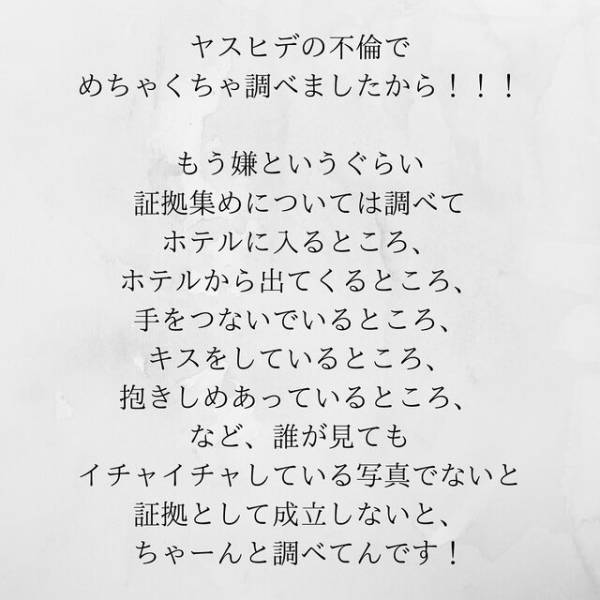 ヤスヒデの不倫で
めちゃくちゃ調べましたから！！！
もう嫌というぐらい
証拠集めについては調べて
ホテルに入るところ、
ホテルから出てくるところ、
手をつないでいるところ、
キスをしているところ、
抱きしめあっているところ、
など、誰が見ても
イチャイチャしている写真でないと
証拠として成立しないと、
ちゃーんと調べてんです！